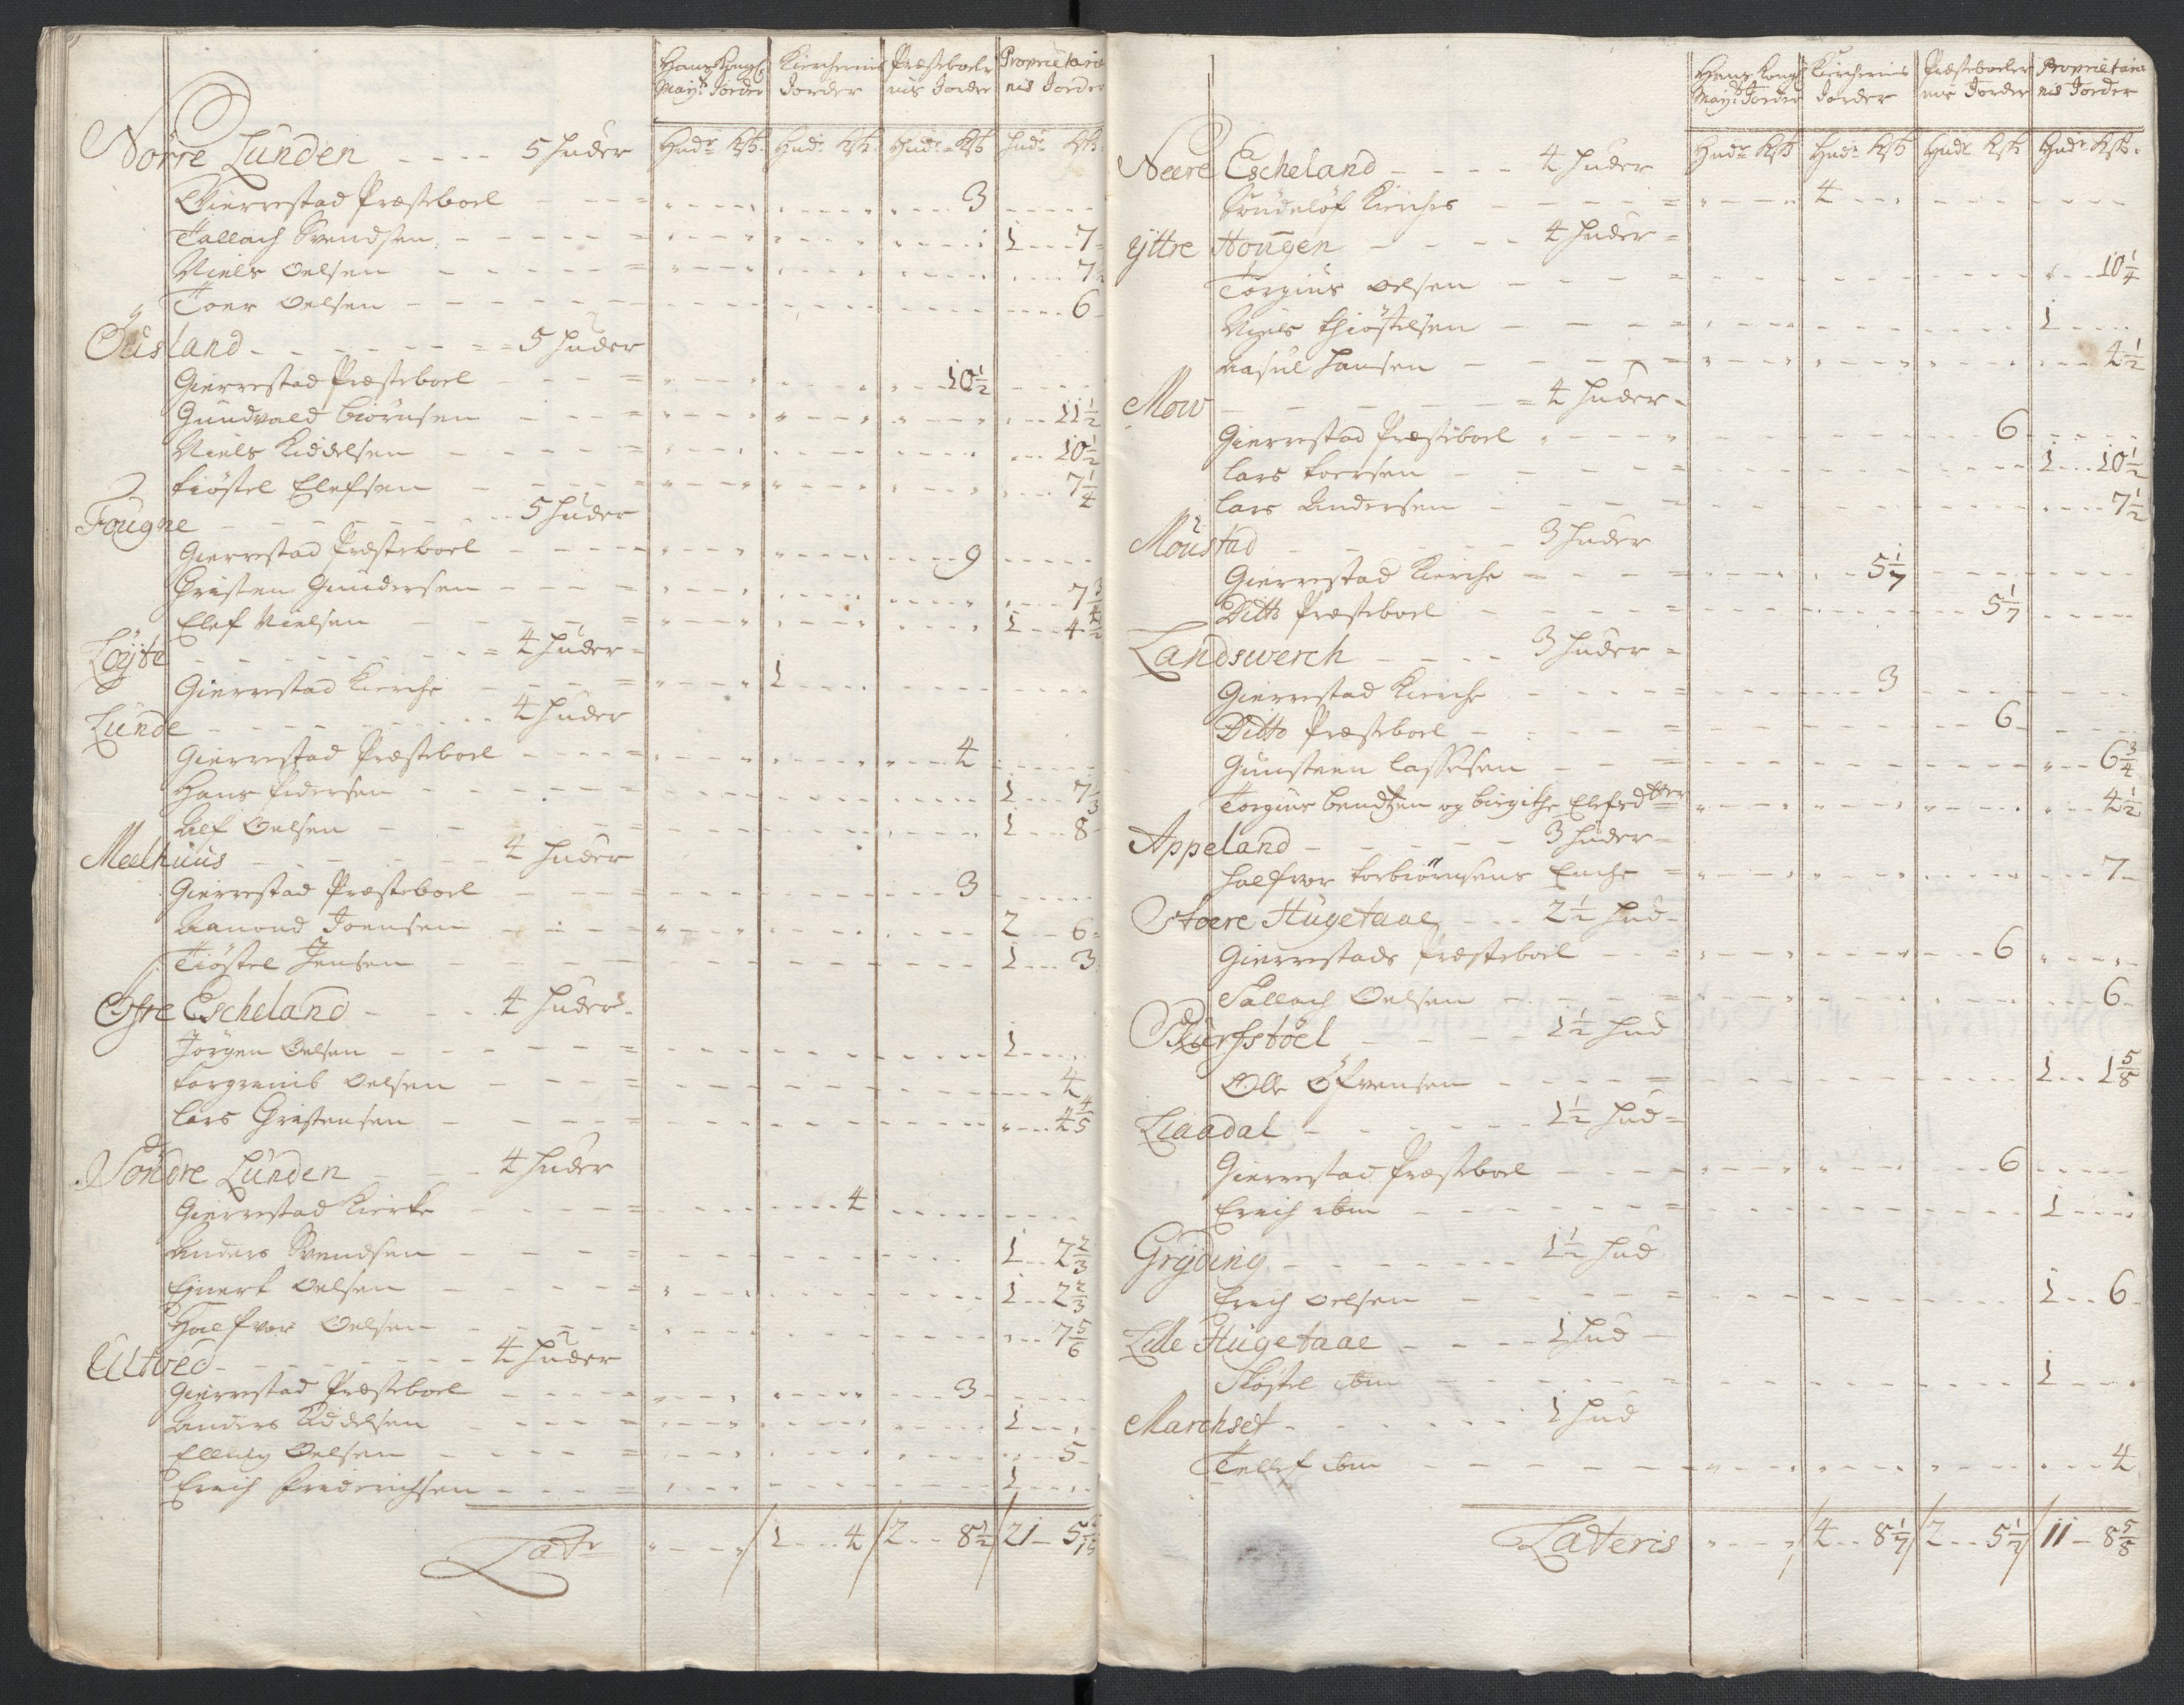 Hans Kongl: May: Jorder | Kirchernis Jorder | Præsteboeler nis Jorder | Proprietarie nis Jorder
Hud: Ksk: | Hud: Ksk: | Hud: Ksk | Hud: Ksk:
Nörre Lunden - - - - 5 Huder
Gierrestad Præsteboel - - - 3
Tallach Svendsen - - - 1 - - 7
Niels Oelsen - - - 7
Toer Oelsen - - - 6
Ousland - - - 5 Huder
Gierrestad Præsteboel - - - 10 1/2
Gundvald Biörnsen - - - 11 1/2
Niels Kiddelsen - - - 10 1/2
Kiöstel Elefsen - - - 7 1/4
Fougne - - - 5 Huder
Gierrestad Præsteboel - - - 9
Christen Gundersen - - - 7 3/4
Elef Nielsen - - - 1 - - 4 1/2
Löyte - - - 4 Huder
Gierrestad Kierche - - - 1
Lunde - - - 4 Huder
Gierrestad Præsteboel - - - 4
Hans Pedersen - - - 1 - - 7
Alf Oelsen - - - 1 - - 8
Meelhuus - - - 4 Huder
Gierrestad Præsteboel - - - 3
Aanond Joensen - - - 2 - - 6
Tiöstel Jensen - - - 1 - - 3
Öfre Escheland - - - 4 Huder
Jörgen Oelsen - - - 1
Oelsen - - - 4
Lars Christensen - - - 4 4/5
Söndre Lunden - - - 4 Huder
Gierrestad Kierke - - - 4
Anders Svendsen - - - 1 - - 2 2/3
Eyvert Oelsen - - - 1 - - 2 2/3
Halfvor Oelsen - - - 7 5/6
Utved - - - 4 Huder
Gierrestad Præsteboel - - - 3
Anders Kiddelsen - - - 1
Elling Oelsen - - - 5
Erich Friderichsen - - - 1
Lat: - - - | 1 - - 4 | 2 - - 8 1/2 | 21 - 5
Hans Kongl: May: Jorder | Kirchernis Jorder | Præsteboeler nis Jorder | Proprietarie nis Jorder
Hud: Ksk | Hud: Ksk | Hud: Ksk | Hud: Ksk:
Neere Escheland - - - - 4 Huder
Söndelöf Kierches - - - 4
Yttre Hougen - - - 4 Huder
Torgius Oelsen - - - 10 1/4
Niels Kiöstelsen - - - 1
Aasul Hansen - - - 4 1/2
Mow - - - 4 Huder
Gierrestad Præsteboel - - - 6
Lars Toersen - - - 1 - - 10 1/2
Lars Andersen - - - 7 1/2
Moustad - - - 3 Huder
Gierrestad Kierche - - - 5 1/7
Ditto Præsteboel - - - 5 1/7
Landswerch - - - 3 Huder
Gierrestad Kierche - - - 3
Ditto Præsteboel - - - 6
Gunsteen Lassesen - - - 6 3/4
Torgius Bendtzen og Birgithe Elefsdtter - - - 4 1/2
Appeland - - - 3 Huder
Halfvor Torbiörnsens Enche - - - 7
Stoere Hugetaae - - - 2 1/2 Hud
Gierrestads Præsteboel - - - 6
Sallach Oelsen - - - 6
Skurfstöel - - - 1 1/2 Hud
Olle Öfvensen - - - 1 - - 1 5/8
Liaadal - - - 1 1/2 Hud
Gierrestad Præsteboel - - - 6
Erich ibm - - - 1
Gryting - - - 1 1/2 Hud
Erich Oelsen - - - 1 - - 6
Lille Hugetaae - - - 1 Hud
Kiöstel ibm - - - 1
Marchset - - - 1 Hud
Tellef ibm - - - 4
Lateris - - - | 4 - - 8 1/7 | 2 - - 5 1/7 | 11 - 8 5/8